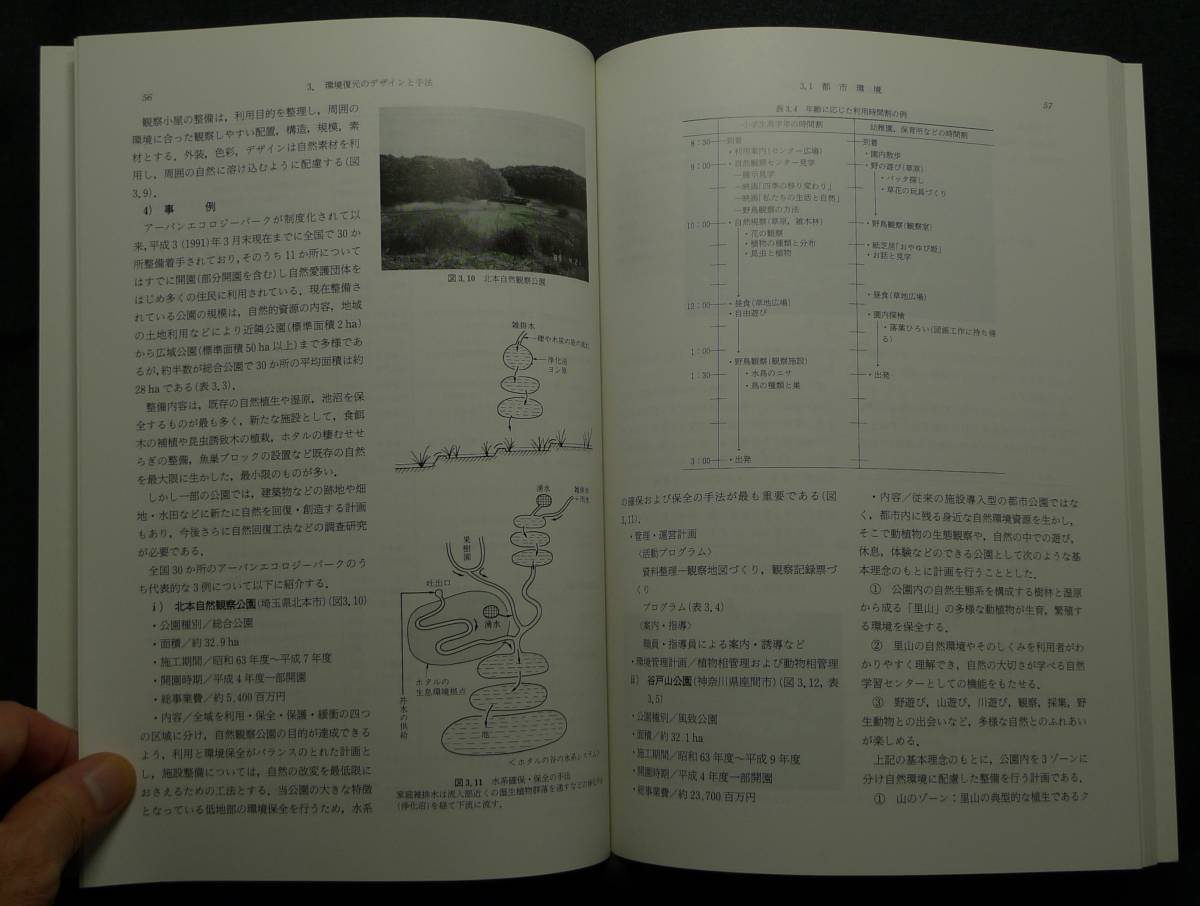 56
3. 環境復元のデザインと手法
観察小屋の整備は，利用目的を整理し，周囲の
環境に合った観察しやすい配置，構造，規模，素
材とする．外装，色彩，デザインは自然素材を利
用し，周囲の自然に溶け込むように配慮する(図
3.9)．
4) 事 例
アーバンエコロジーパークが制度化されて以
来,平成3(1991)年3月末現在までに全国で30か
所整備着手されており,そのうち11か所について
はすでに開園(部分開園を含む)し自然愛護団体を
はじめ多くの住民に利用されている．現在整備さ
れている公園の規模は，自然的資源の内容，地域
の土地利用などにより近隣公園(標準面積2ha)
から広域公園(標準面積50ha以上)まで多様であ
るが,約半数が総合公園で30か所の平均面積は約
28haである(表3.3)．
整備内容は，既存の自然植生や湿原，池沼を保
全するものが最も多く，新たな施設として，食餌
木の補植や昆虫誘致木の植栽，ホタルの棲むせせ
らぎの整備，魚巣ブロックの設置など既存の自然
を最大限に生かした，最小限のものが多い．
しかし一部の公園では，建築物などの跡地や畑
地・水田などに新たに自然を回復・創造する計画
もあり，今後さらに自然回復工法などの調査研究
が必要である．
全国30か所のアーバンエコロジーパークのう
ち代表的な3例について以下に紹介する．
i) 北本自然観察公園(埼玉県北本市)(図3.10)
・公園種別／総合公園
・面積／約32.9ha
・施工期間／昭和63年度～平成7年度
・開園時期／平成4年度一部開園
・総事業費／約5,400百万円
・内容／全域を利用・保全・保護・緩衝の四つ
の区域に分け，自然観察公園の目的が達成できる
よう，利用と環境保全がバランスのとれた計画と
し，施設整備については，自然の改変を最低限に
おさえるための工法とする．当公園の大きな特徴
となっている低地部の環境保全を行うため，水系
図3.10 北本自然観察公園
雑排水
浄化沼
ヨシ原
湧水
雑排水
+雨水
果樹園
吐出口
湧水
ホタルの
生息環境拠点
井水の供給
池
<ホタルの谷の水系システム>
図3.11 水系確保・保全の手法
家庭雑排水は流入部近くの湿生植物群落を通すなどの浄化沼
(浄化沼)を経て下流に流す．
3.1 都市環境
57
表3.4 年齢に応じた利用時間割の例
小学生高学年の時間割
幼稚園，保育所などの時間割
8：30
到着
・利用案内(センター広場)
9：00
・自然観察センター見学
―展示見学
―映画「四季の移り変わり」
―映画「私たちの生活と自然」
―野鳥観察の方法
10：00
・自然観察(草原，雑木林)
・花の観察
・植物の種類と分布
・昆虫と植物
12：00
・昼食(草地広場)
・自由遊び
1：00
1：30
・野鳥観察(観察施設)
・水鳥のエサ
・鳥の種類と巣
3：00
・出発
到着
・園内散歩
・野の遊び(草原)
・バッタ探し
・草花の玩具づくり
・野鳥観察(観察室)
・紙芝居「おやゆび姫」
・お話と見学
・昼食(草地広場)
・園内探検
・落葉ひろい(図画工作に持ち帰
る)
・出発
の確保および保全の手法が最も重要である(図
3.11)．
・管理・運営計画
〈活動プログラム〉
資料整理―観察地図づくり，観察記録票づ
くり
プログラム(表3.4)
〈案内・指導〉
職員・指導員による案内・誘導など
・環境管理計画／植物相管理および動物相管理
ii) 谷戸山公園(神奈川県座間市)(図3.12，表
3.5)
・公園種別／風致公園
・面積／約32.1ha
・施工期間／昭和63年度～平成9年度
・開園時期／平成4年度一部開園
・総事業費／約23,700百万円
・内容／従来の施設導入型の都市公園ではな
く，都市内に残る身近な自然環境資源を生かし，
そこで動植物の生態観察や，自然の中での遊び，
休息，体験などのできる公園として次のような基
本理念のもとに計画を行うこととした．
① 公園内の自然生態系を構成する樹林と湿原
から成る「里山」の多様な動植物が生育，繁殖す
る環境を保全する．
② 里山の自然環境やそのしくみを利用者がわ
かりやすく理解でき，自然の大切さが学べる自然
学習センターとしての機能をもたせる．
③ 野遊び，山遊び，川遊び，観察，採集，野
生動物との出会いなど，多様な自然とのふれあい
が楽しめる．
上記の基本理念のもとに，公園内を3ゾーンに
分け自然環境に配慮した整備を行う計画である．
① 山のゾーン；里山の典型的な植生であるク